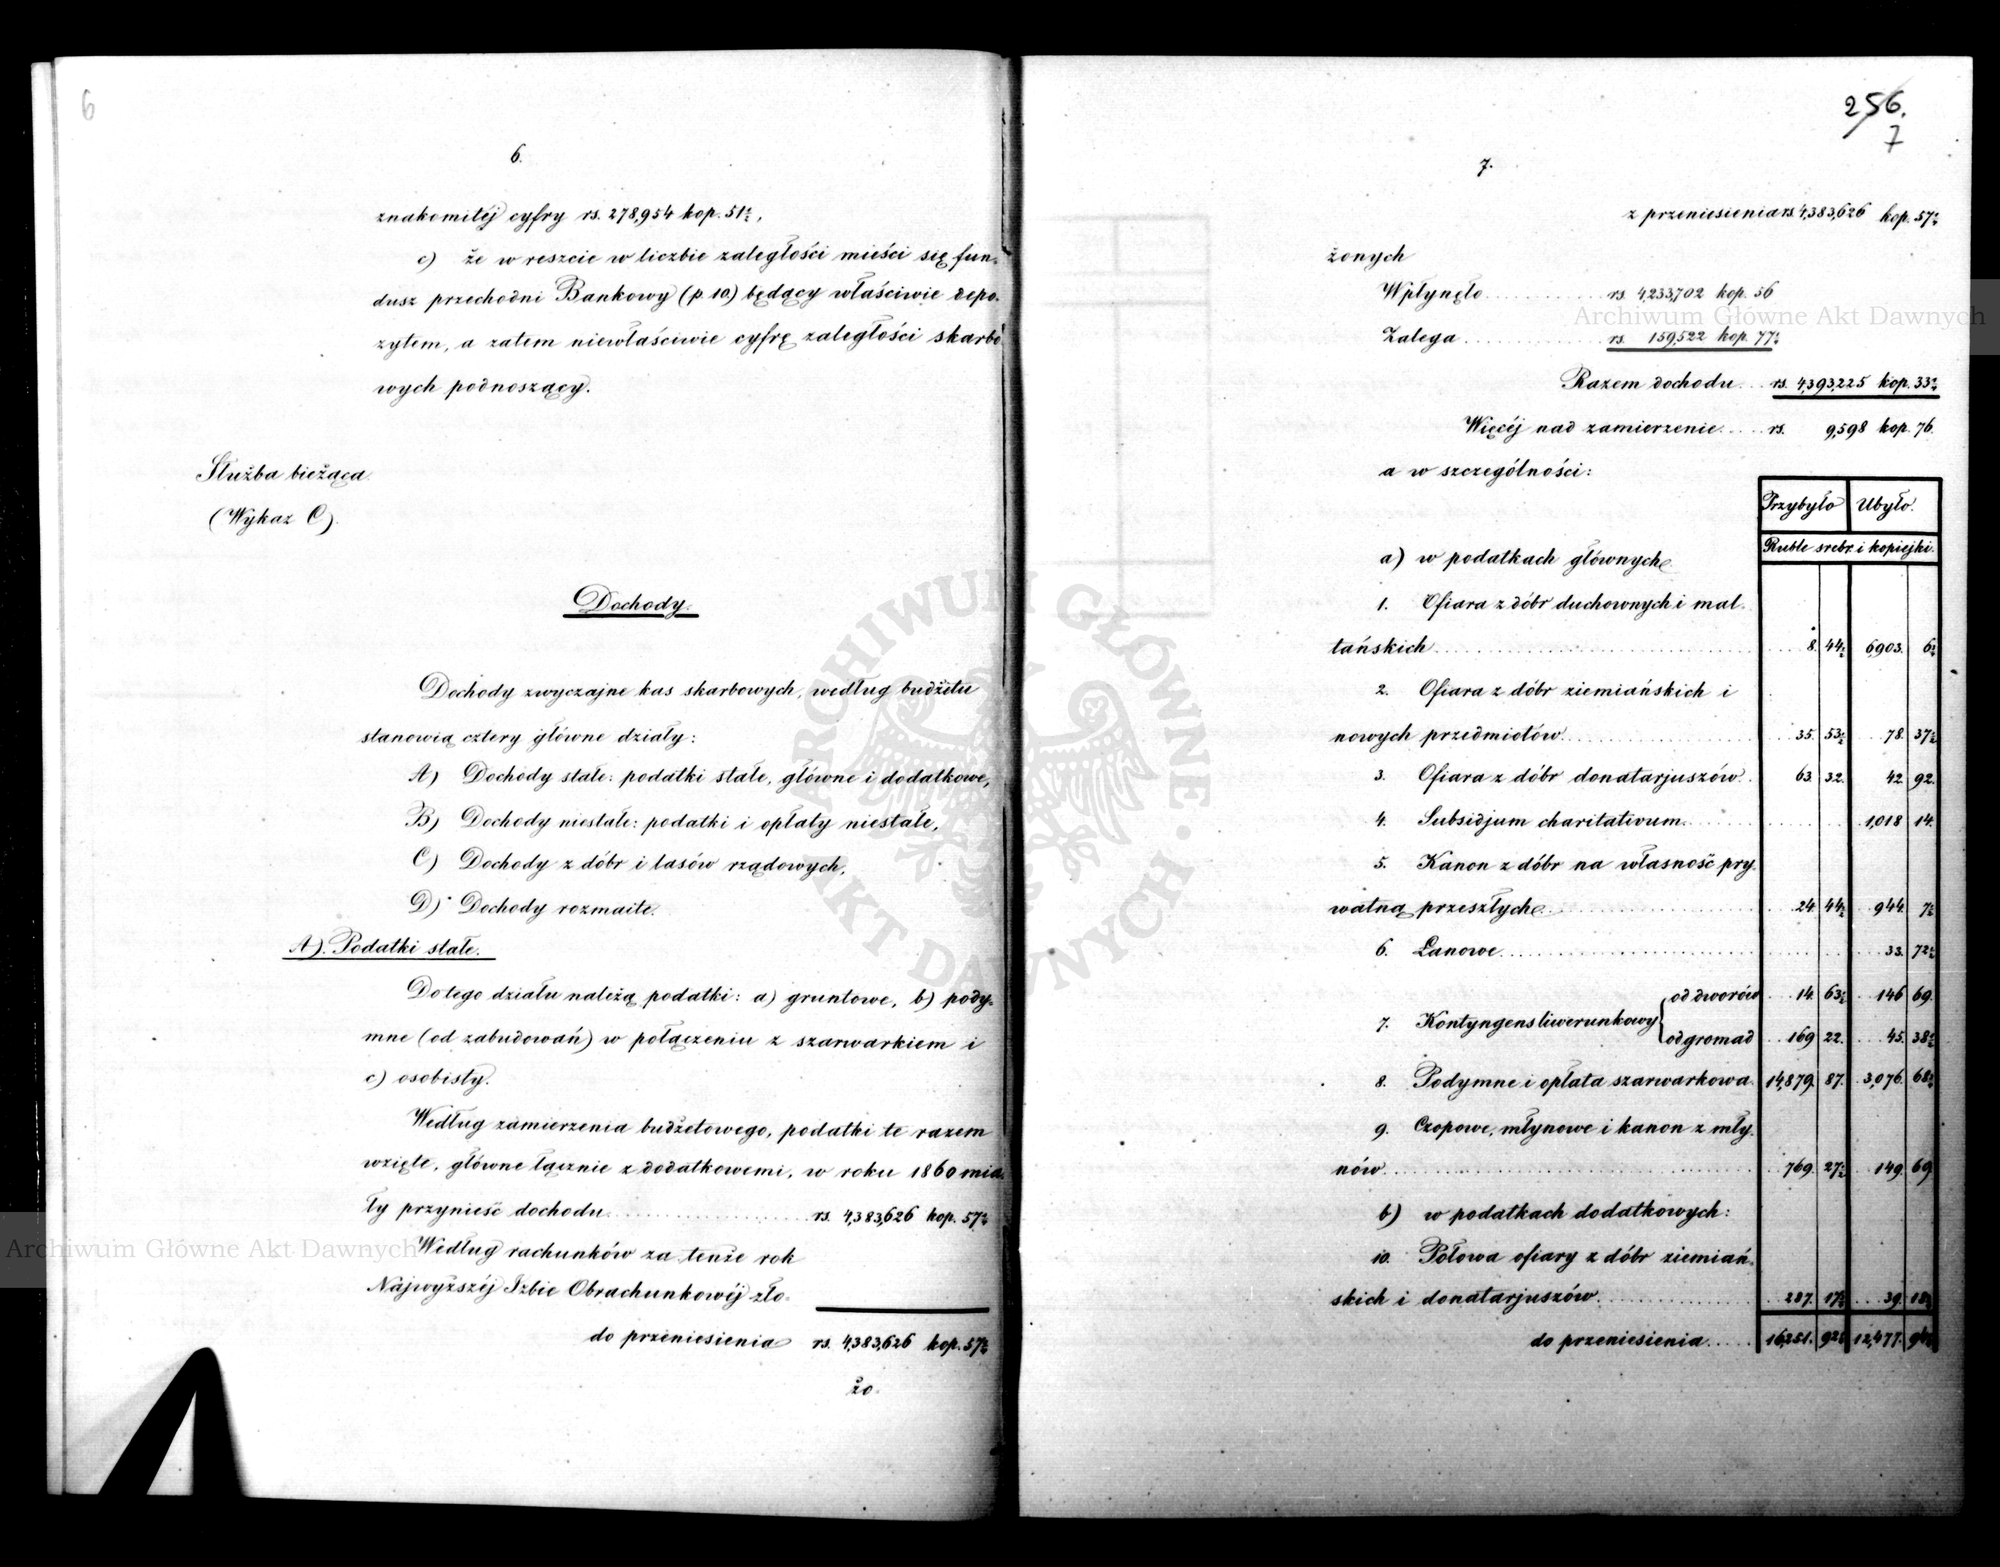 6
6.
znakomitéj cyfry rs. 278,954 kop. 51½,
c) że w reszcie w liczbie zaległości mieści się fun-
dusz przechodni Bankowy (p. 10.) będący właściwie depo-
zytem, a zatem niewłaściwie cyfrę zaległości skarbo-
wych podnoszący.
Służba bieżąca.
(Wykaz C).
Dochody.
Dochody zwyczajne kas skarbowych, według budżetu
stanowią cztery główne działy:
A) Dochody stałe: podatki stałe, główne i dodatkowe,
B) Dochody niestałe: podatki i opłaty niestałe,
C) Dochody z dóbr i lasów rządowych,
D) Dochody rozmaite.
A). Podatki stałe.
Do tego działu należą podatki: a) gruntowe, b) pody-
mne (od zabudowań) w połączeniu z szarwarkiem i
c) osobisty.
Według zamierzenia budżetowego, podatki te razem
wzięte, główne łącznie z dodatkowemi, w roku 1860 mia-
ły przynieść dochodu rs. 4,383,626 kop. 57½
Według rachunków za tenże rok
Najwyższéj Izbie Obrachunkowéj zło-
do przeniesienia rs. 4,383,626 kop. 57½
żo
256.
7
7.
z przeniesienia rs. 4,383,626 kop. 57½
żonych
Wpłynęło rs. 4,233,702 kop. 56
Zalega rs. 159,522 kop. 77½
Razem dochodu rs. 4,393,225 kop. 33½
Więcéj nad zamierzenie rs. 9,598 kop. 76.
a w szczególności:
Przybyło Ubyło.
Ruble srebr. i kopiejki.
a) w podatkach głównych
1. Ofiara z dóbr duchownych i mal-
tańskich 8. 44½ 6,903. 6½
2. Ofiara z dóbr ziemiańskich i
nowych przedmiotów 35. 53½ 78. 37½
3. Ofiara z dóbr donatarjuszów 63. 32. 42. 92.
4. Subsidjum charitativum 1,018 14.
5. Kanon z dóbr na własność pry-
watną przeszłych 24. 44½ 944. 7½
6. Łanowe 33. 72½
7. Kontyngens liwerunkowy od dworów 14. 63½ 146 69.
od gromad 169 22. 45. 38½
8. Podymne i opłata szarwarkowa 14,879. 87. 3,076. 68½
9. Czopowe, młynowe i kanon z mły-
nów 769. 27½ 149. 69
b) w podatkach dodatkowych:
10. Połowa ofiary z dóbr ziemiań-
skich i donatarjuszów 287. 17½ 39. 18½
do przeniesienia 16,251. 92 12,477.
Archiwum Główne Akt Dawnych
Archiwum Główne Akt Dawnych
ARCHIWUM GŁÓWNE AKT DAWNYCH